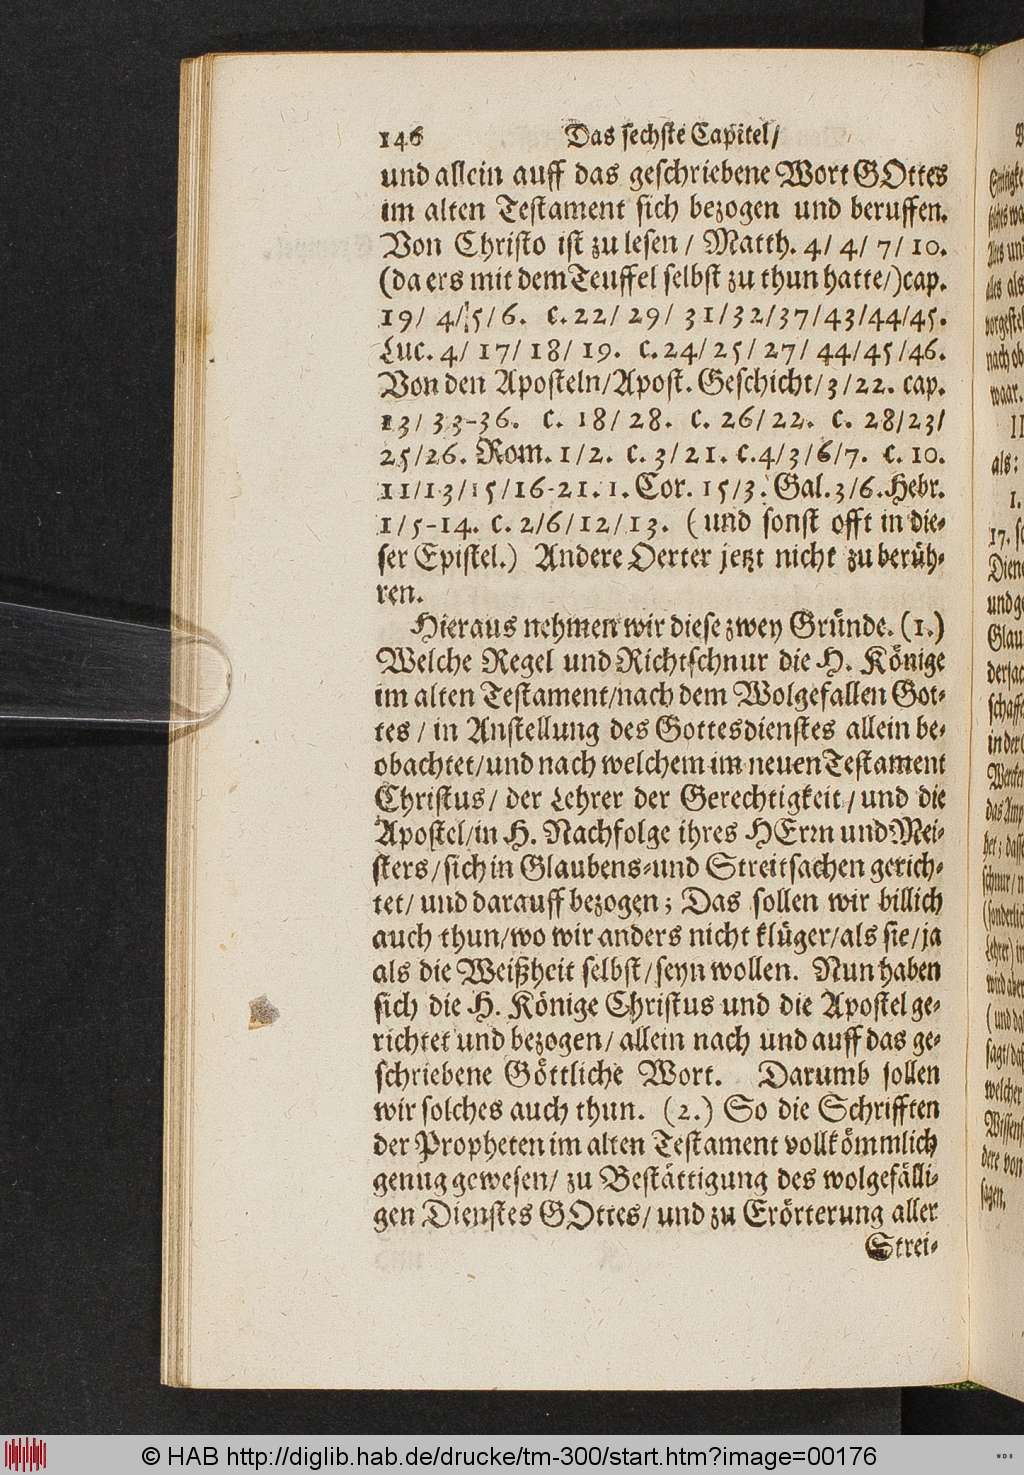 146 Das sechste Capitel/
und allein auff das geschriebene Wort GOttes
im alten Testament sich bezogen und beruffen.
Von Christo ist zu lesen / Matth. 4/ 4/ 7/ 10.
(da ers mit dem Teuffel selbst zu thun hatte/) cap.
19/ 4/ 5/6. c. 22/ 29/ 31/32/37/43/44/45.
Luc. 4/ 17/ 18/ 19. c. 24/ 25/ 27/ 44/45/46.
Von den Aposteln/Apost. Geschicht/3/22. cap.
13/ 33-36. c. 18/ 28. c. 26/22. c. 28/23/
25/26. Rom. 1/2. c. 3/21. c. 4/3/6/7. c. 10.
11/13/15/16-21. 1. Cor. 15/3. Gal. 3/6. Hebr.
1/5-14. c. 2/6/12/13. (und sonst offt in die-
ser Epistel.) Andere Oerter jetzt nicht zu berüh-
ren.
Hieraus nehmen wir diese zwey Gründe. (1.)
Welche Regel und Richtschnur die H. Könige
im alten Testament/nach dem Wolgefallen Got-
tes / in Anstellung des Gottesdienstes allein be-
obachtet/und nach welchem im neuen Testament
Christus/ der Lehrer der Gerechtigkeit/ und die
Apostel/in H. Nachfolge ihres HErrn und Mei-
sters/sich in Glaubens-und Streitsachen gerich-
tet/ und darauff bezogen; Das sollen wir billich
auch thun/wo wir anders nicht klüger/als sie/ja
als die Weißheit selbst/seyn wollen. Nun haben
sich die H. Könige Christus und die Apostel ge-
richtet und bezogen/ allein nach und auff das ge-
schriebene Göttliche Wort. Darumb sollen
wir solches auch thun. (2.) So die Schrifften
der Propheten im alten Testament vollkömmlich
genug gewesen/ zu Bestättigung des wolgefälli-
gen Dienstes GOttes/ und zu Erörterung aller
Strei-
© HAB http://diglib.hab.de/drucke/tm-300/start.htm?image=00176